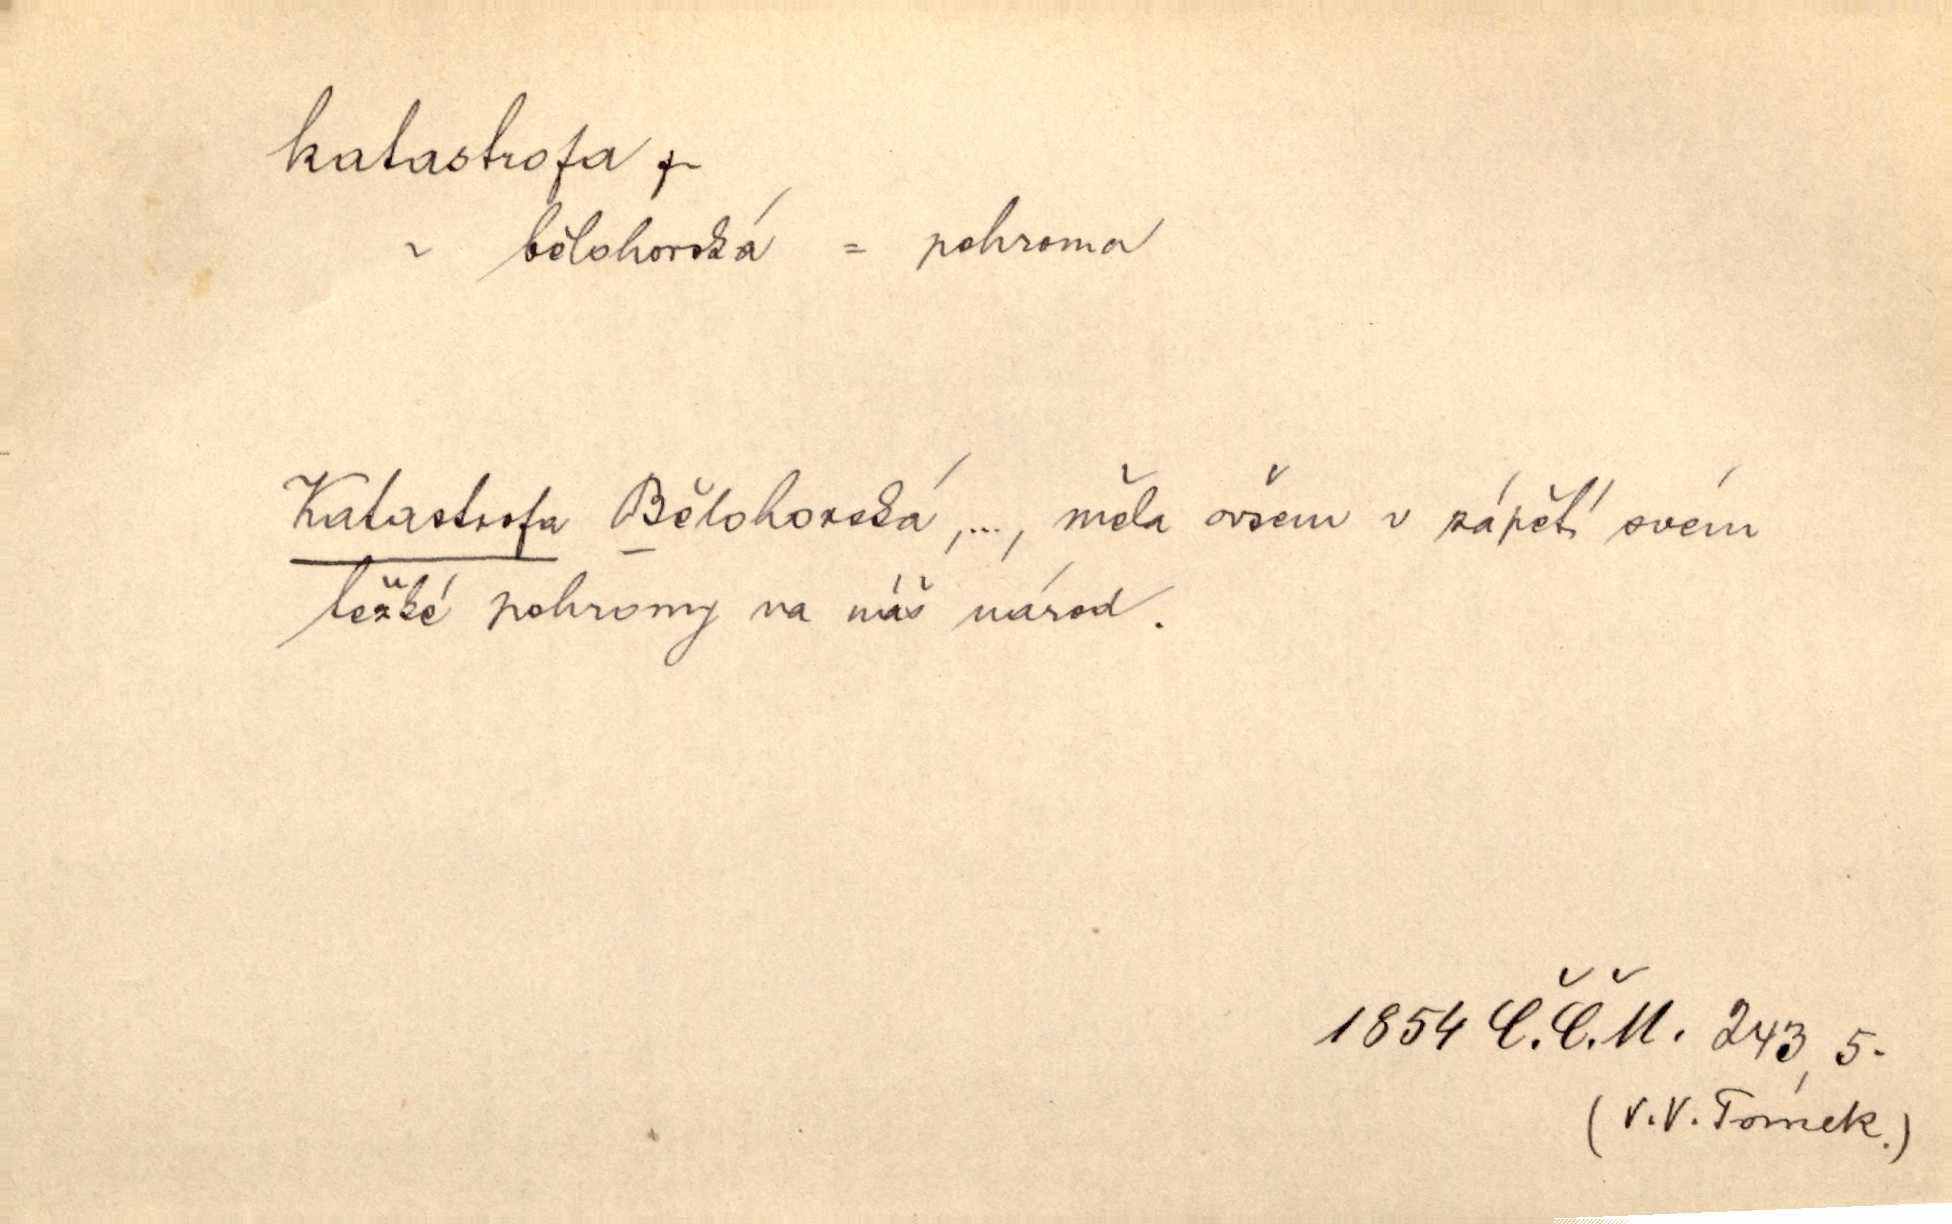 katastrofa f
~ bělohorská = pohroma
Katastrofa Bělohorská, ..., měla ovšem v zápětí svém
težké pohromy na náš národ.
1854 Č.Č.M. 243, 5.
(V.V. Tomek.)